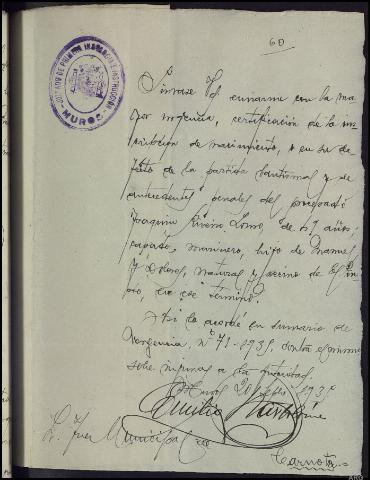 60
JUZGADO DE PRIMERA INSTANCIA E INSTRUCCION
MUROS
Sirvase Vd enviarme con la ma-
yor urgencia, certificación de la ins-
cripción de nacimiento, o en su de-
fecto de la partida bautismal y de
antecedentes penales del procesado
Joaquin Lomo, de 67 años,
casado, marinero, hijo de Manuel
y Dolores, natural y vecino de
de ese término.
Asi lo acordé en sumario de
urgencia, nº 71-1935, contra el mismo
sobre injurias a la autoridad.
Muros 20 1935
Emilio
Sr. Juez Municipal de
Carnota